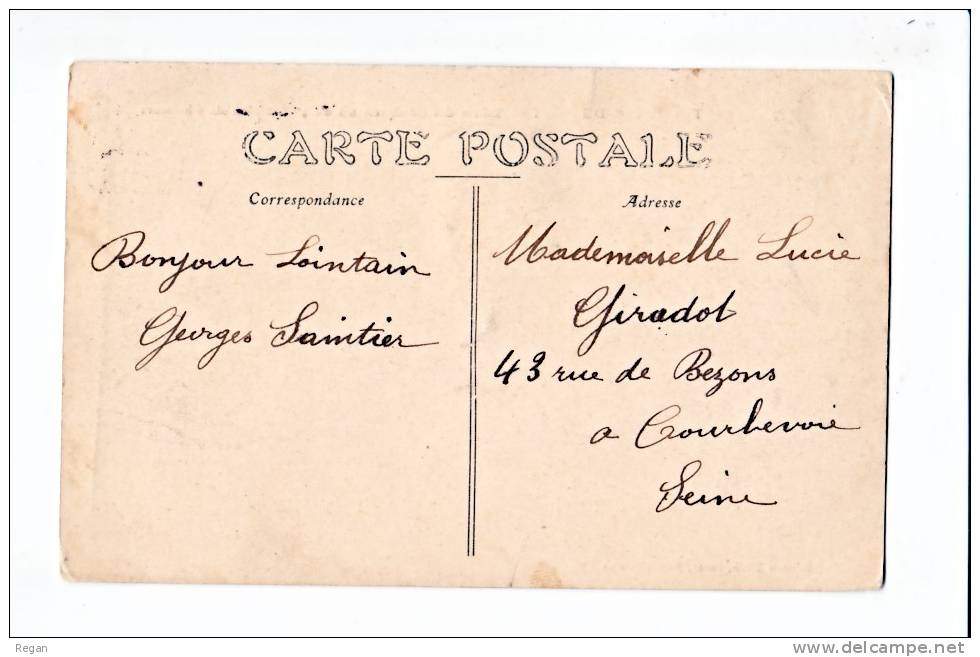 CARTE POSTALE
Correspondance
Adresse
Bonjour Lointain
Georges Saintier
Mademoiselle Lucie
Giradot
43 rue de Bezons
a Courbevoie
Seine
Regan
delcampe.net